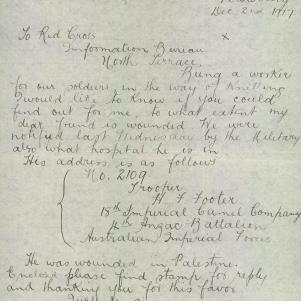 Dec 2nd 1917
To Red Cross x
Information Bureau
North Terrace.
Being a worker
for our soldiers, in the way of Knitting
I would like to know if you could
find out for me, to what extent my
dear friend is wounded. We were
notified last Wednesday by the Military
also what hospital he is in
His address is as follows
No. 2109
Trooper
H. F. Footer
18th Imperial Camel Company
4th Anzac Battalion
Australian Imperial Forces
He was wounded in Palestine.
Enclosed please find stamp for reply
and thanking you for this favor